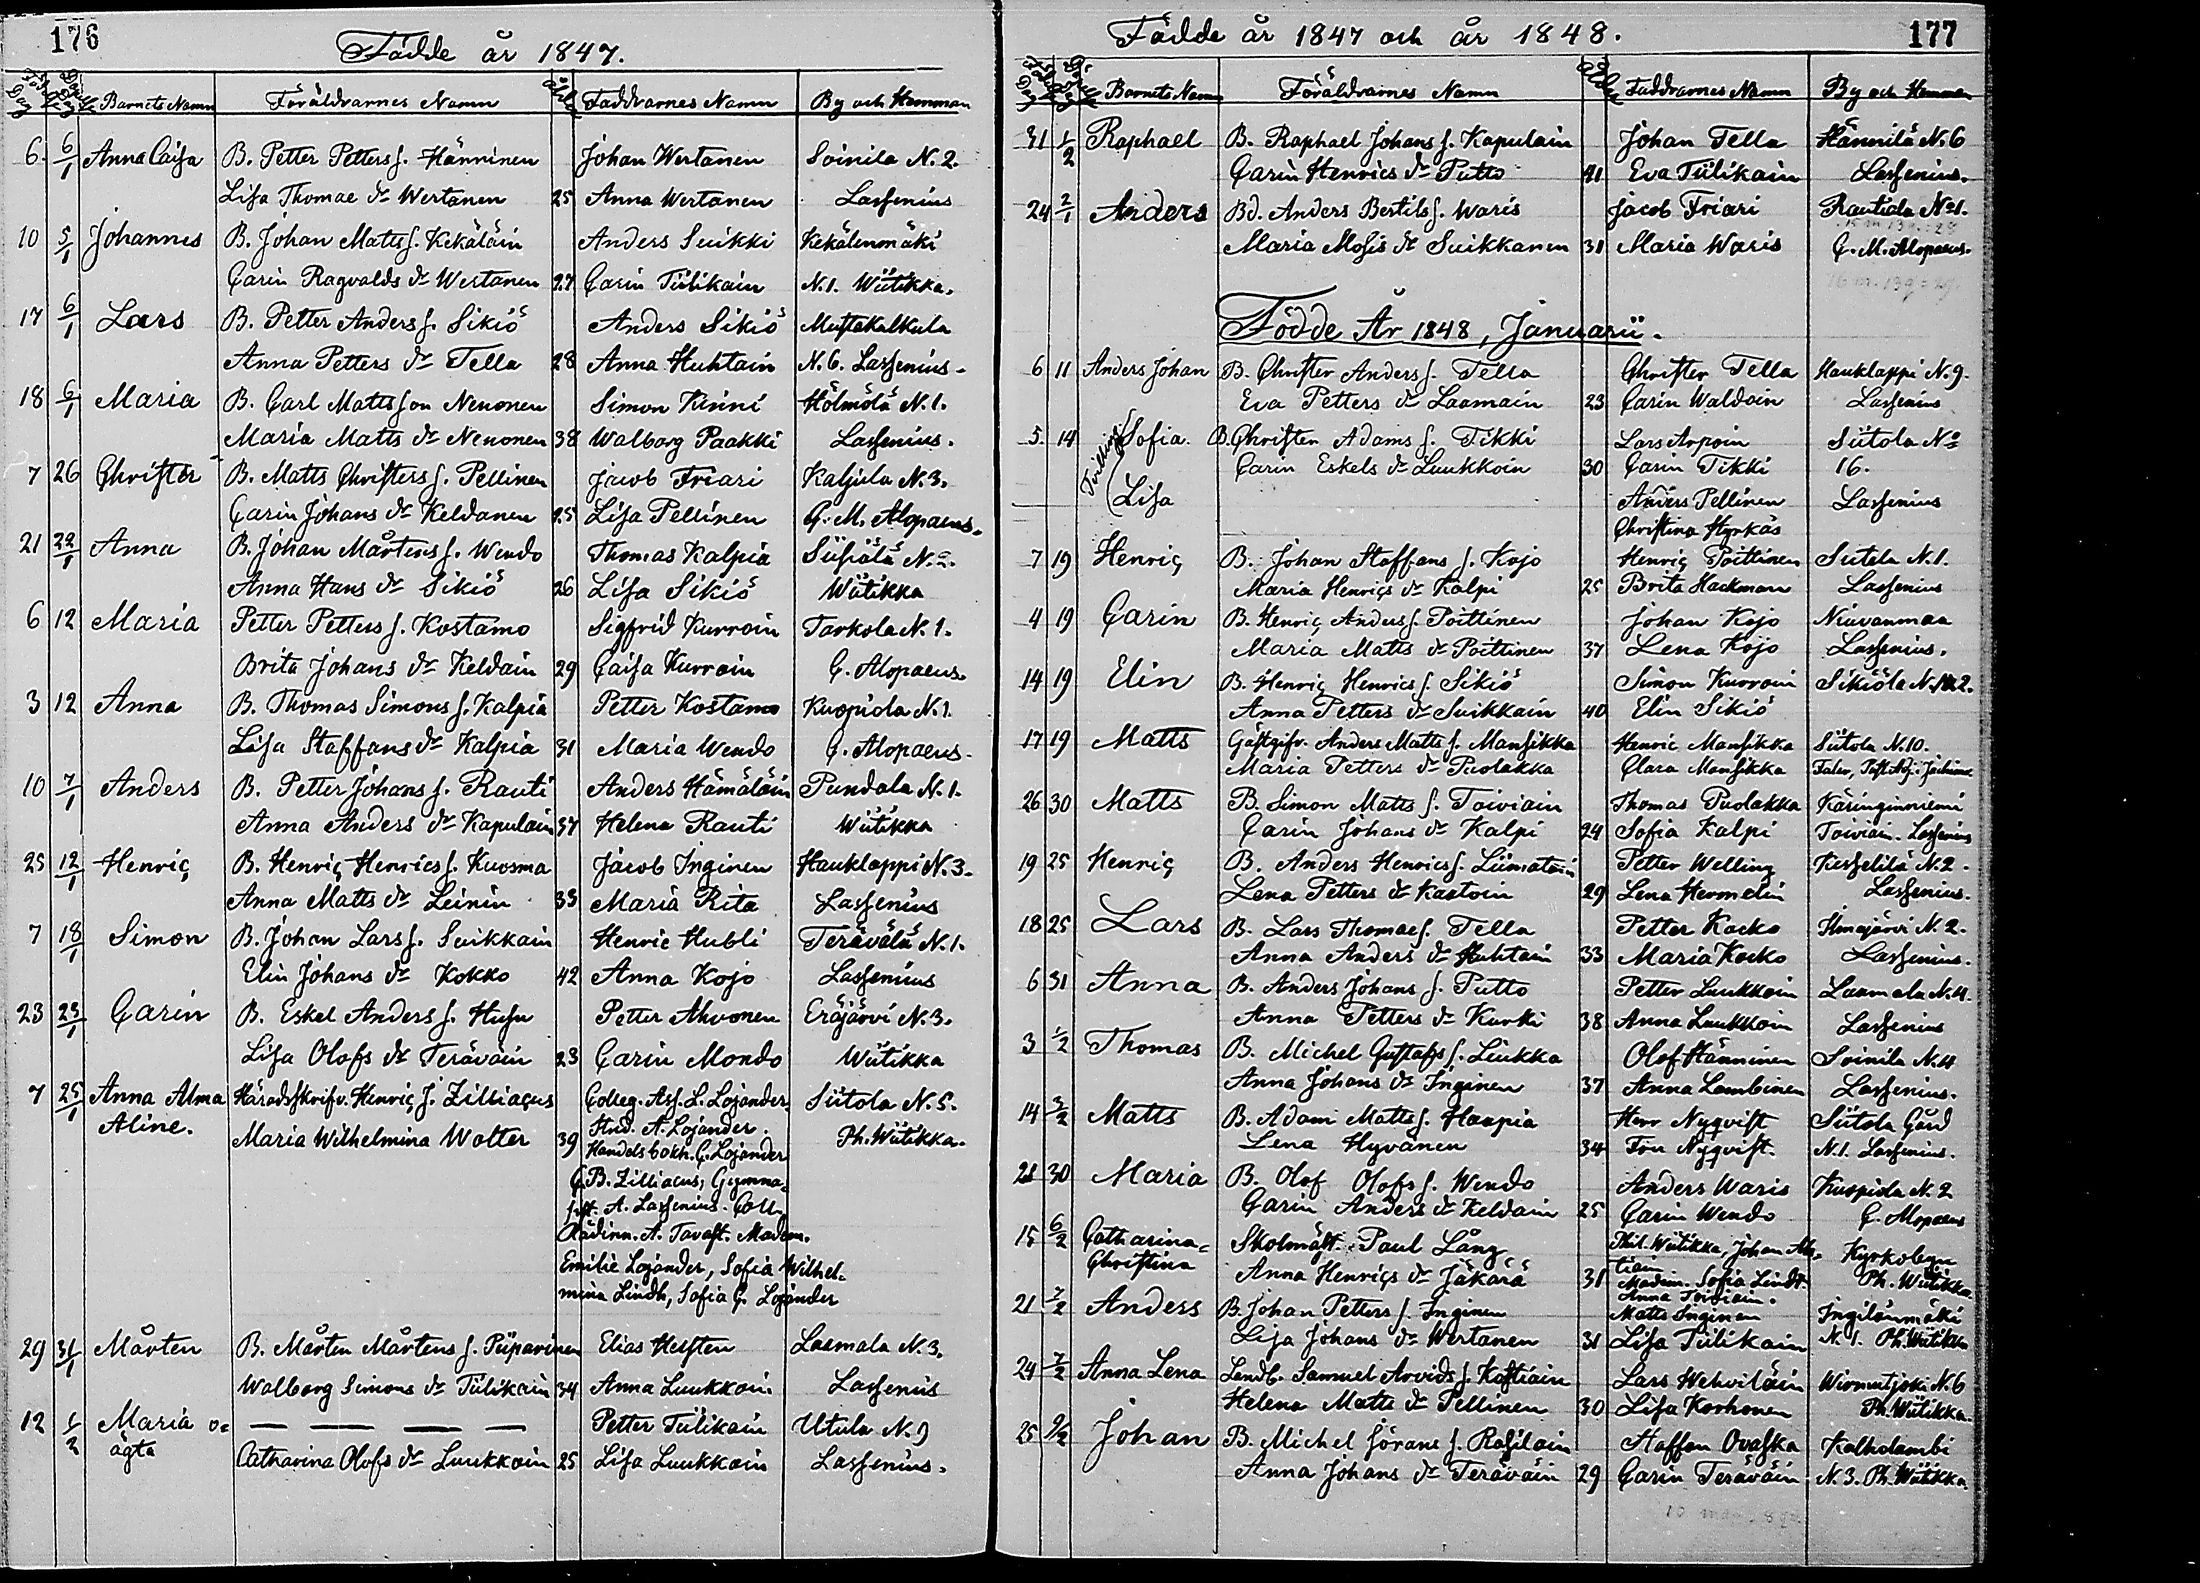 176
Födde år 1847.
Barnets Namn Föräldrarnes Namn Faddrarnes Namn By och Hemman
6 6/1 Anna Caisa B. Petter Petters s. Hänninen Johan Wertanen Soinila N. 2.
Lisa Thomae dr Wertanen 25 Anna Wertanen Lassenius
10 5/1 Johannes B. Johan Matts s. Kekäläin Anders Suikki Kekälenmäki
Carin Ragvalds dr Wertanen 27 Carin Tiilikain N. 1. Wiitikka.
17 6/1 Lars B. Petter Anders s. Sikiö Anders Sikiö Mustakalkula
Anna Petters dr Tella 28 Anna Huhtain N. 6. Lassenius
18 6/1 Maria B. Carl Mattsson Nenonen Simon Kinni Hölmölä N. 1.
Maria Matts dr Nenonen 38 Walborg Paakki Lassenius.
7 26 Christer B. Matts Christers s. Pellinen Jacob Friari Kaljula N. 3.
Carin Johans dr Keldanen 25 Lisa Pellinen C. M. Alopaeus.
21 22/1 Anna B. Johan Mårtens s. Wendo Thomas Kalpia
Anna Hans dr Sikiö 26 Lisa Sikiö Wiitikka
6 12 Maria Petter Petters s. Kostamo Sigfrid Kurroin Tarkola N. 1.
Brita Johans dr Keldain 29 Caisa Kurroin C. Alopaeus.
3 12 Anna B. Thomas Simons s. Kalpia Petter Kostamo Kuopiola N. 1.
Lisa Staffans dr Kalpia 31 Maria Wendo C. Alopaeus
10 7/1 Anders B. Petter Johans s. Rauti Anders Hämäläin Pundala N. 1.
Anna Anders dr Kapulain 37 Helena Rauti Wiitikka
25 12/1 Henric B. Henric Henrics s. Kuosma Jacob Inginen Hauklappi N. 3.
Anna Matts dr Leinin 33 Maria Rita Lassenius
7 18/1 Simon B. Johan Lars s. Suikkain Henric Hubli Terävälä N. 1.
Elin Johans dr Kokko 42 Anna Kojo Lassenius
23 23/1 Carin B. Eskel Anders s. Husu Petter Ahvonen Eräjärvi N. 3.
Lisa Olofs dr Teräväin 23 Carin Mondo Wiitikka
7 25/1 Anna Alma Häradsskrifv. Henric J. Zilliacus Colleg. Ass. L. Lojander, Siitola N. 5.
Aline. Stud. A. Lojander.
Maria Wilhelmina Wolter 39 Handelsbokh. C. Lojander Ph. Wiitikka.
C. B. Zilliacus, Gymna-
sist. A. Lassenius. Coll.
Rådinn. A. Tavast. Madem.
Emilie Lojander, Sofia Wilhel-
mina Lindh, Sofia C. Lojander
29 31/1 Mårten B. Mårten Mårtens s. Piiparinen Elias Helsten Laamala N. 3.
Walborg Simons dr Tiilikain 34 Anna Luukkoin Lassenius
12 1/2 Maria o- Petter Tiilikain Utula N. 9
ägta Catharina Olofs dr Luukkoin 25 Lisa Luukkain Lassenius.
Födde år 1847 och år 1848. 177
Barnets Namn Föräldrarnes Namn Faddrarnes Namn By och Hemman
31 1/2 Raphael B. Raphael Johans s. Kapulain Johan Tella Hännilä N. 6
Carin Henrics dr Putto 41 Eva Tiilikain Lassenius.
24 2/1 Anders Bd. Anders Bertils s. Waris Jacob Friari Rautiala No 1.
Maria Mosis dr Suikkanen 31 Maria Waris C. M. Alopaeus.
Födde År 1848, Januarii.
6 11 Anders Johan B. Christer Anders s. Tella Christer Tella Hauklappi N. 9.
Eva Petters dr Laamain 23 Carin Waldoin Lassenius
5. 14 Tvillingar Sofia. B. Christer Adams s. Tikki Lars Arpoin Siitola No
Carin Eskels dr Luukkoin 30 Carin Tikki 16.
Lisa Anders Pellinen Lassenius
Christina Hyrkäs
7 19 Henric B. Johan Staffans s. Kojo Henric Poittinen Sutela N. 1.
Maria Henrics dr Kalpi 25 Brita Hackman Lassenius
4 19 Carin B. Henric Anders s. Poittinen Johan Kojo Niuvanmaa
Maria Matts dr Poittinen 37 Lena Kojo Lassenius.
14 19 Elin B. Henric Henrics s. Sikiö Simon Kurroin Sikiölä N. 2.
Anna Petters dr Suikkain 40 Elin Sikiö
17 19 Matts Gästgifv. Anders Matts s. Mansikka Henric Mansikka Siitola N. 10.
Maria Petters dr Puolakka Clara Mansikka
26 30 Matts B. Simon Matts s. Toiviain Thomas Puolakka Käringinniemi
Carin Johans dr Kalpi 24 Sofia Kalpi Toiviain. Lassenius
19 25 Henric B. Anders Henrics s. Liimatain Petter Welling Kesselilä N. 2.
Lena Petters dr Kastoin 29 Lena Hermelin Lassenius.
18 25 Lars B. Lars Thomae s. Tella Petter Kocko Ilmajärvi N. 2.
Anna Anders dr Huhtain 33 Maria Kocko Lassenius.
6 31 Anna B. Anders Johans s. Putto Petter Luukkoin Laamala N. 4.
Anna Petters dr Kurki 38 Anna Luukkoin Lassenius
3 1/2 Thomas B. Michel Gustafs s. Liukka Olof Hänninen Soinila N. 4
Anna Johans dr Inginen 37 Anna Lambinen Lassenius.
14 3/2 Matts B. Adam Matts s. Haapia Herr Nyqvist Siitola Gård
Lena Hyvänen 34 Fru Nyqvist. N. 1. Lassenius.
21 30 Maria B. Olof Olofs s. Wendo Anders Waris Kuopiola N. 2
Carin Anders dr Keldain 25 Carin Wendo C. Alopaeus
15 6/2 Catharina Skolmäst. Paul Lång Phil. Wiitikka, Johan
Christina Anna Henrics dr Jäkärä 31 Madem. Sofia Lindh Ph. Wiitikka
Anna Toiviain.
21 7/2 Anders B. Johan Petters s. Inginen Matts Inginen Ingilänmäki
Lisa Johans dr Wertanen 31 Lisa Tiilikain N. 1. Ph. Wiitikka
24 7/2 Anna Lena Landb. Samuel Arvids s. Kostiain Lars Wehviläin Wirmutjoki N. 6
Helena Matts dr Pellinen 30 Lisa Korhonen Ph. Wiitikka.
25 9/2 Johan B. Michel Jörans s. Rasilain Staffan Ovaska Kalholambi
Anna Johans dr Teräväin 29 Carin Teräväin N. 3. Ph. Wiitikka